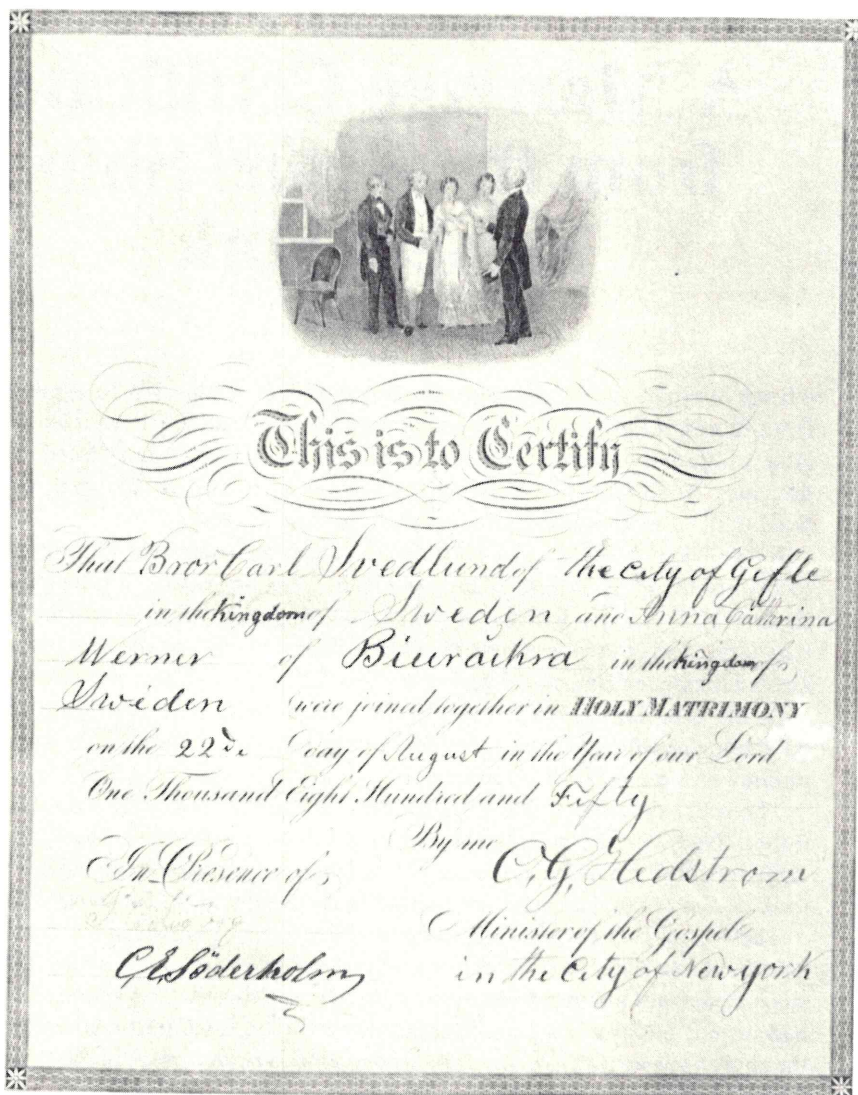 This is to Certify
That Bror Carl Svedlund of the City of Gefle
in the Kingdom of Sweden and Anna Cathrina
Werner of in the Kingdom of
Sweden were joined together in HOLY MATRIMONY
on the 22de day of August in the Year of our Lord
One Thousand Eight Hundred and Fifty
By me
In Presence of C. G. Hedstrom
Minister of the Gospel
C, E, Söderholm in the City of New york